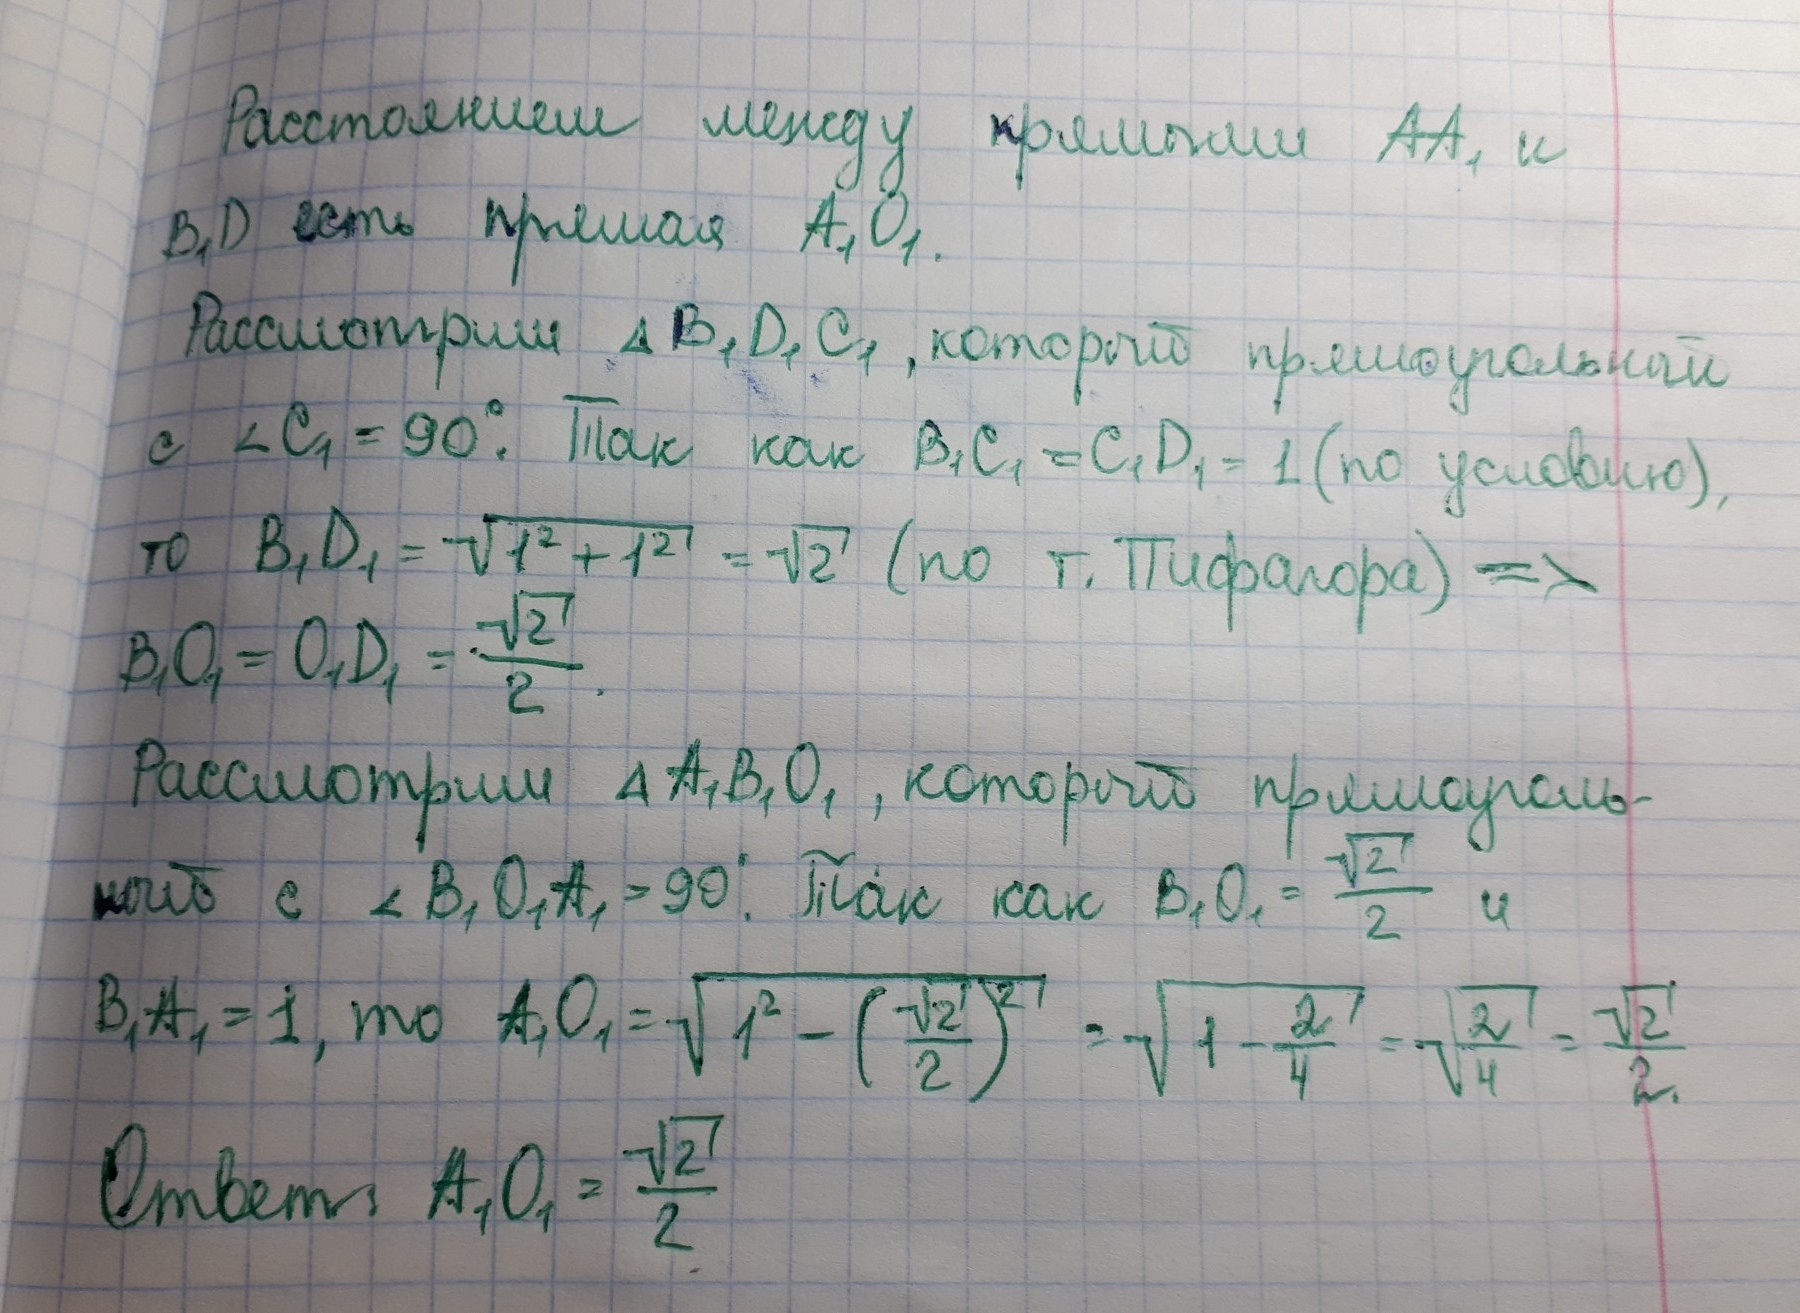 Расстоянием между прямыми AA₁ и
B₁D есть прямая A₁O₁.
Рассмотрим △B₁D₁C₁, который прямоугольный
с ∠C₁ = 90°. Так как B₁C₁ = C₁D₁ = 1 (по условию),
то B₁D₁ = √(1² + 1²) = √2 (по т. Пифагора) =>
B₁O₁ = O₁D₁ = √2/2.
Рассмотрим △A₁B₁O₁, который прямоуголь-
ный с ∠B₁O₁A₁ = 90°. Так как B₁O₁ = √2/2 и
B₁A₁ = 1, то A₁O₁ = √(1² - (√2/2)²) = √(1 - 2/4) = √(2/4) = √2/2.
Ответ: A₁O₁ = √2/2